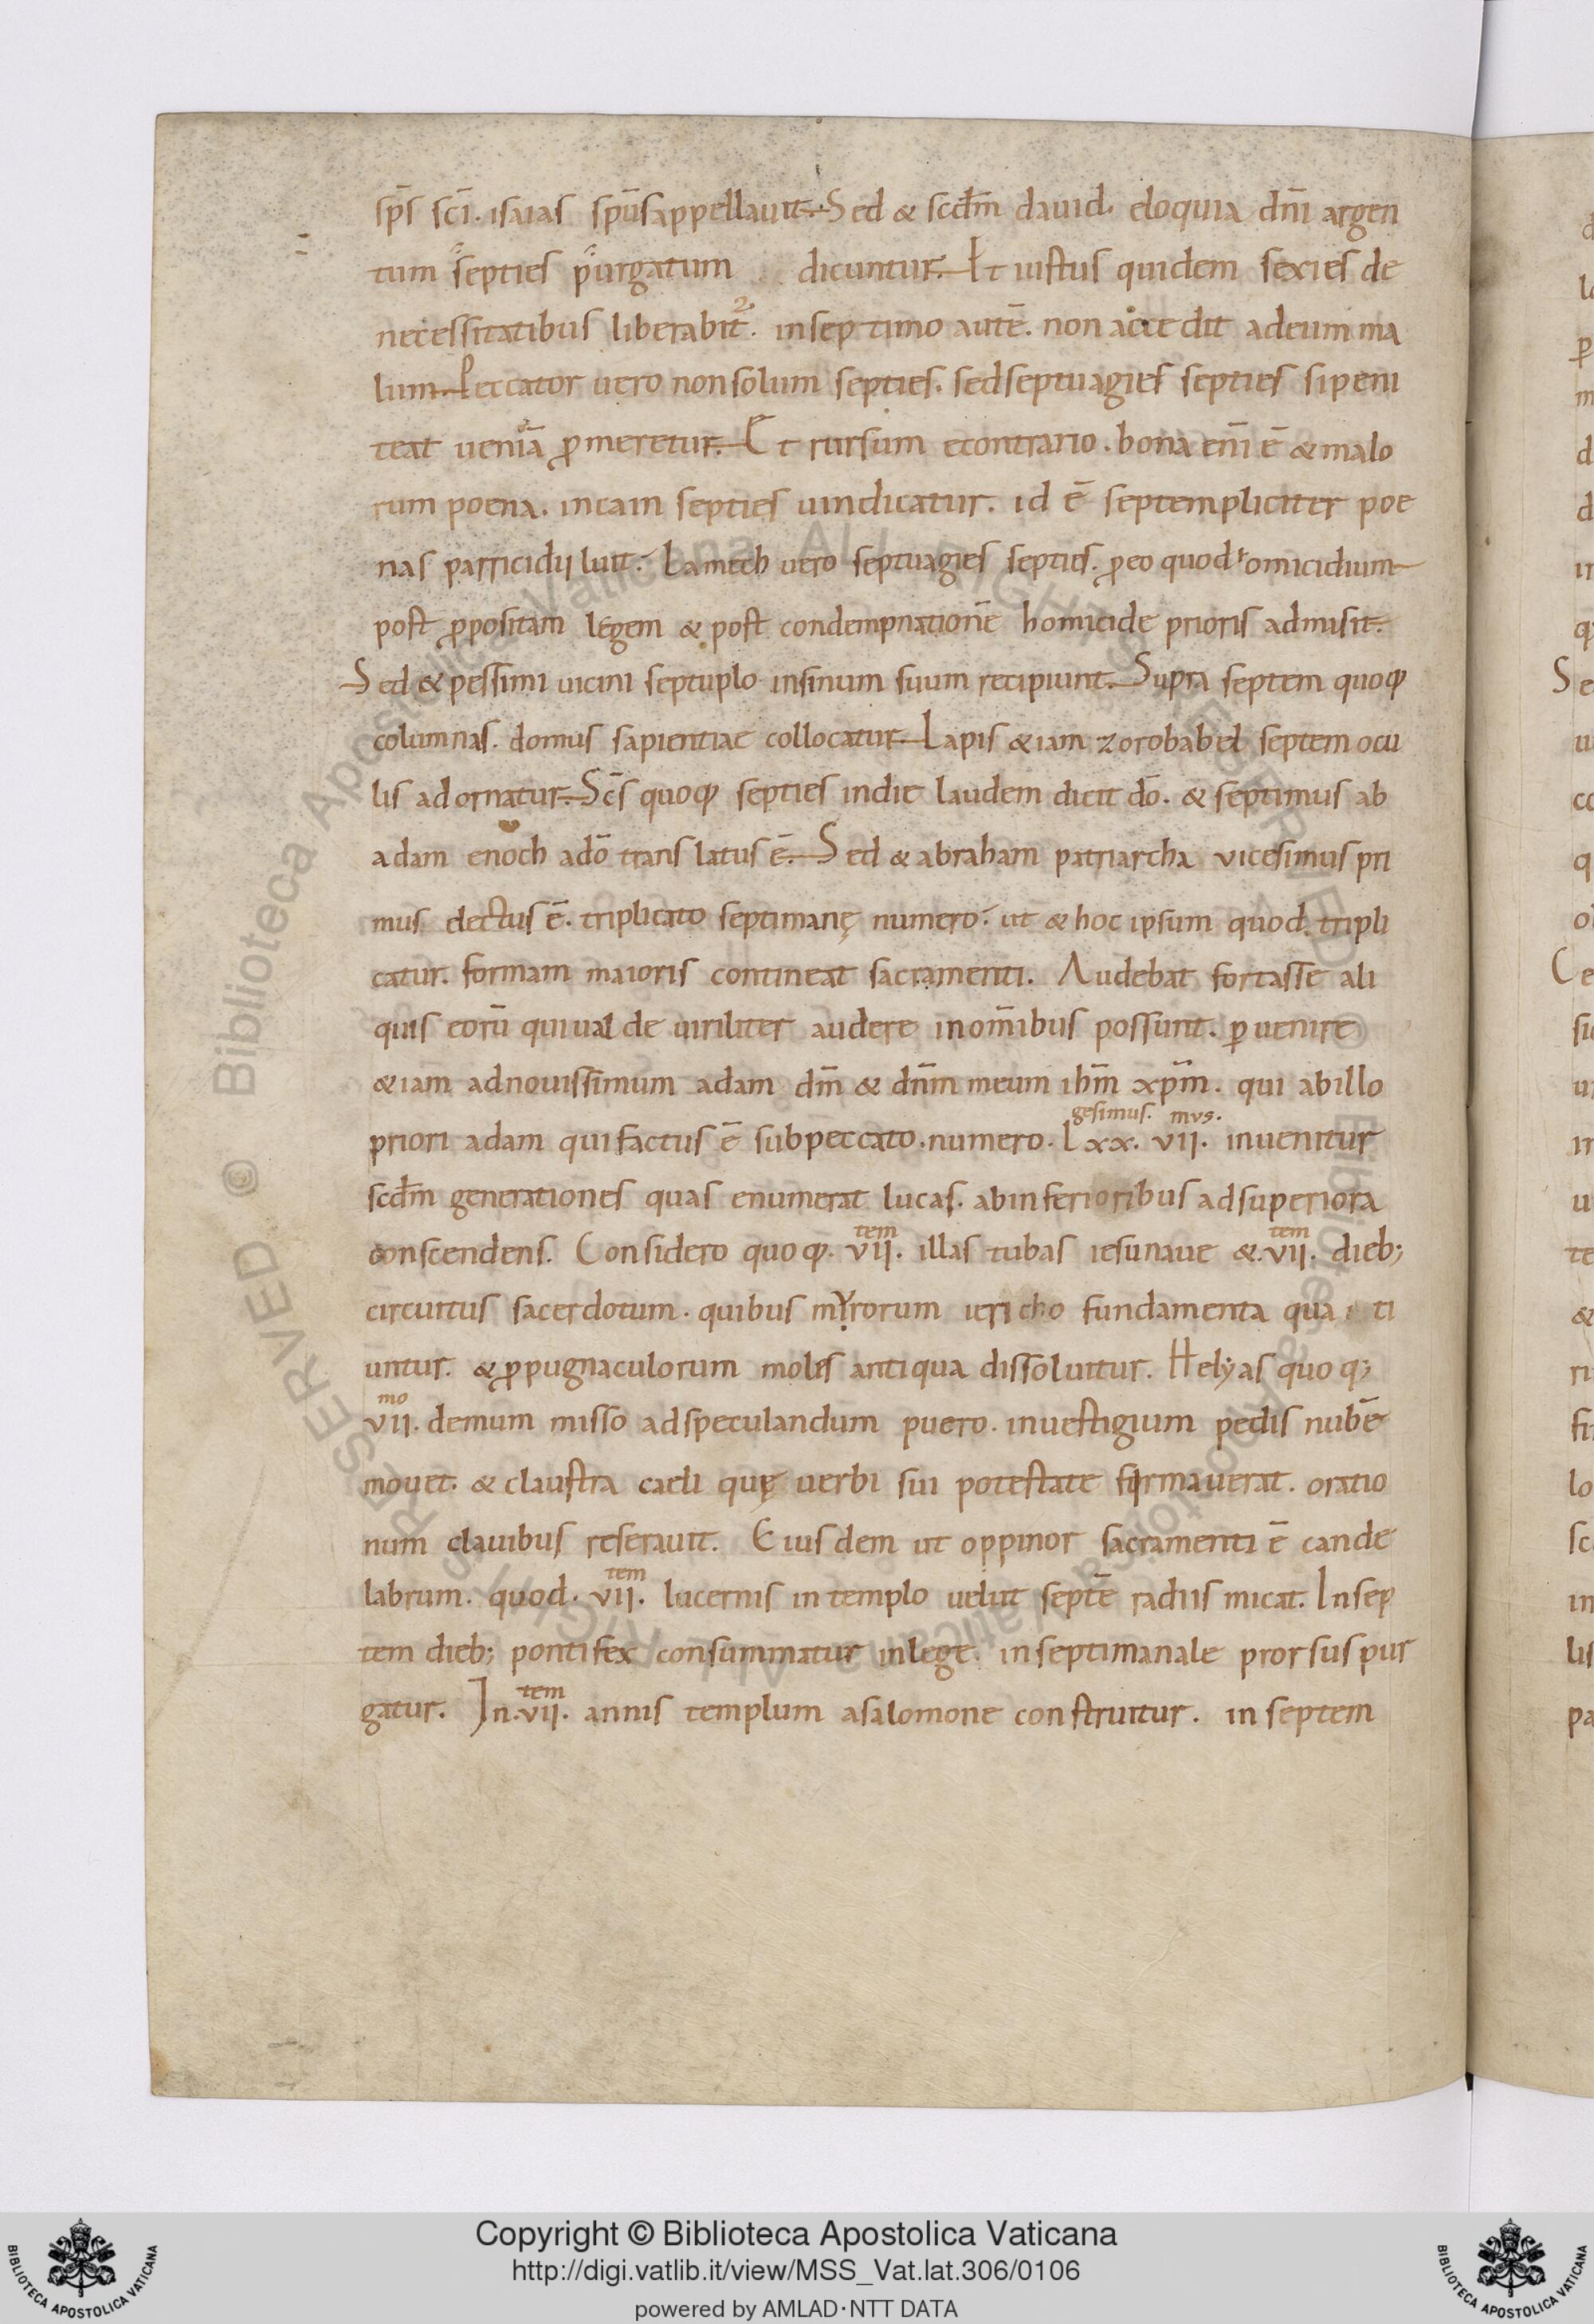 sp̄s sc̄i. isaias sp̄us appellauit. Sed & scd̄m dauid. eloquia dn̄i argen
tum septies purgatum dicuntur. Et iustus quidem sexies de
necessitatibus liberabit. in septimo autē. non accedit ad eum ma
lum. Peccator uero non solum septies. sed septuagies septies si peni
teat ueniā ꝓmeretur. Et rursum econtrario. bona eni̅ ē & malo
rum poena. in cain septies uindicatur. id ē septempliciter poe
nas parricidij luit. Lamech uero septuagies septies. ꝓ eo quod omicidium
post ꝓpositam legem & post condempnationē homicide prioris admisit.
Sed & pessimi uicini septuplo in sinum suum recipiunt. Supra septem quoqꝫ
columnas. domus sapientiae collocatur. Lapis &iam zorobabel septem ocu
lis adornatur. Sc̄s quoqꝫ septies in die laudem dicit dō. & septimus ab
adam enoch ad dō translatus ē. Sed & abraham patriarcha vicesimus pri
mus electus ē. triplicato septimanę numero. ut & hoc ipsum quod tripli
catur. formam maioris contineat sacramenti. Audebat fortasse ali
quis eorū qui ualde uiriliter audere in om̄ibus possunt. ꝑuenire
&iam ad nouissimum adam dm̄ & dn̄m meum ihm̄ xpm̄. qui ab illo
gesimus. mvs.
priori adam qui factus ē sub peccato. numero. lxx. vii. inuenitur
scd̄m generationes quas enumerat lucas. ab inferioribus ad superiora
tem tem
conscendens. Considero quoqꝫ. vii. illas tubas iesu naue &. vii. dieb;
circuitus sacerdotum. quibus mvrorum iericho fundamenta qua ti
untur. & ꝓpugnaculorum moles antiqua dissoluitur. Helyas quoq;
mo
vii. demum misso ad speculandum puero. in uestigium pedis nubē
mouet. & claustra caeli quę uerbi sui potestate firmauerat. oratio
num clauibus reserauit. Eiusdem ut oppinor sacramenti ē cande
tem
labrum. quod. vii. lucernis in templo uelut septē radiis micat. In sep
tem dieb; pontifex consummatur in lege. in septimana leprorsus pur
tem
gatur. In. vii. annis templum a salomone construitur. in septem
Copyright © Biblioteca Apostolica Vaticana
http://digi.vatlib.it/view/MSS_Vat.lat.306/0106
powered by AMLAD·NTT DATA